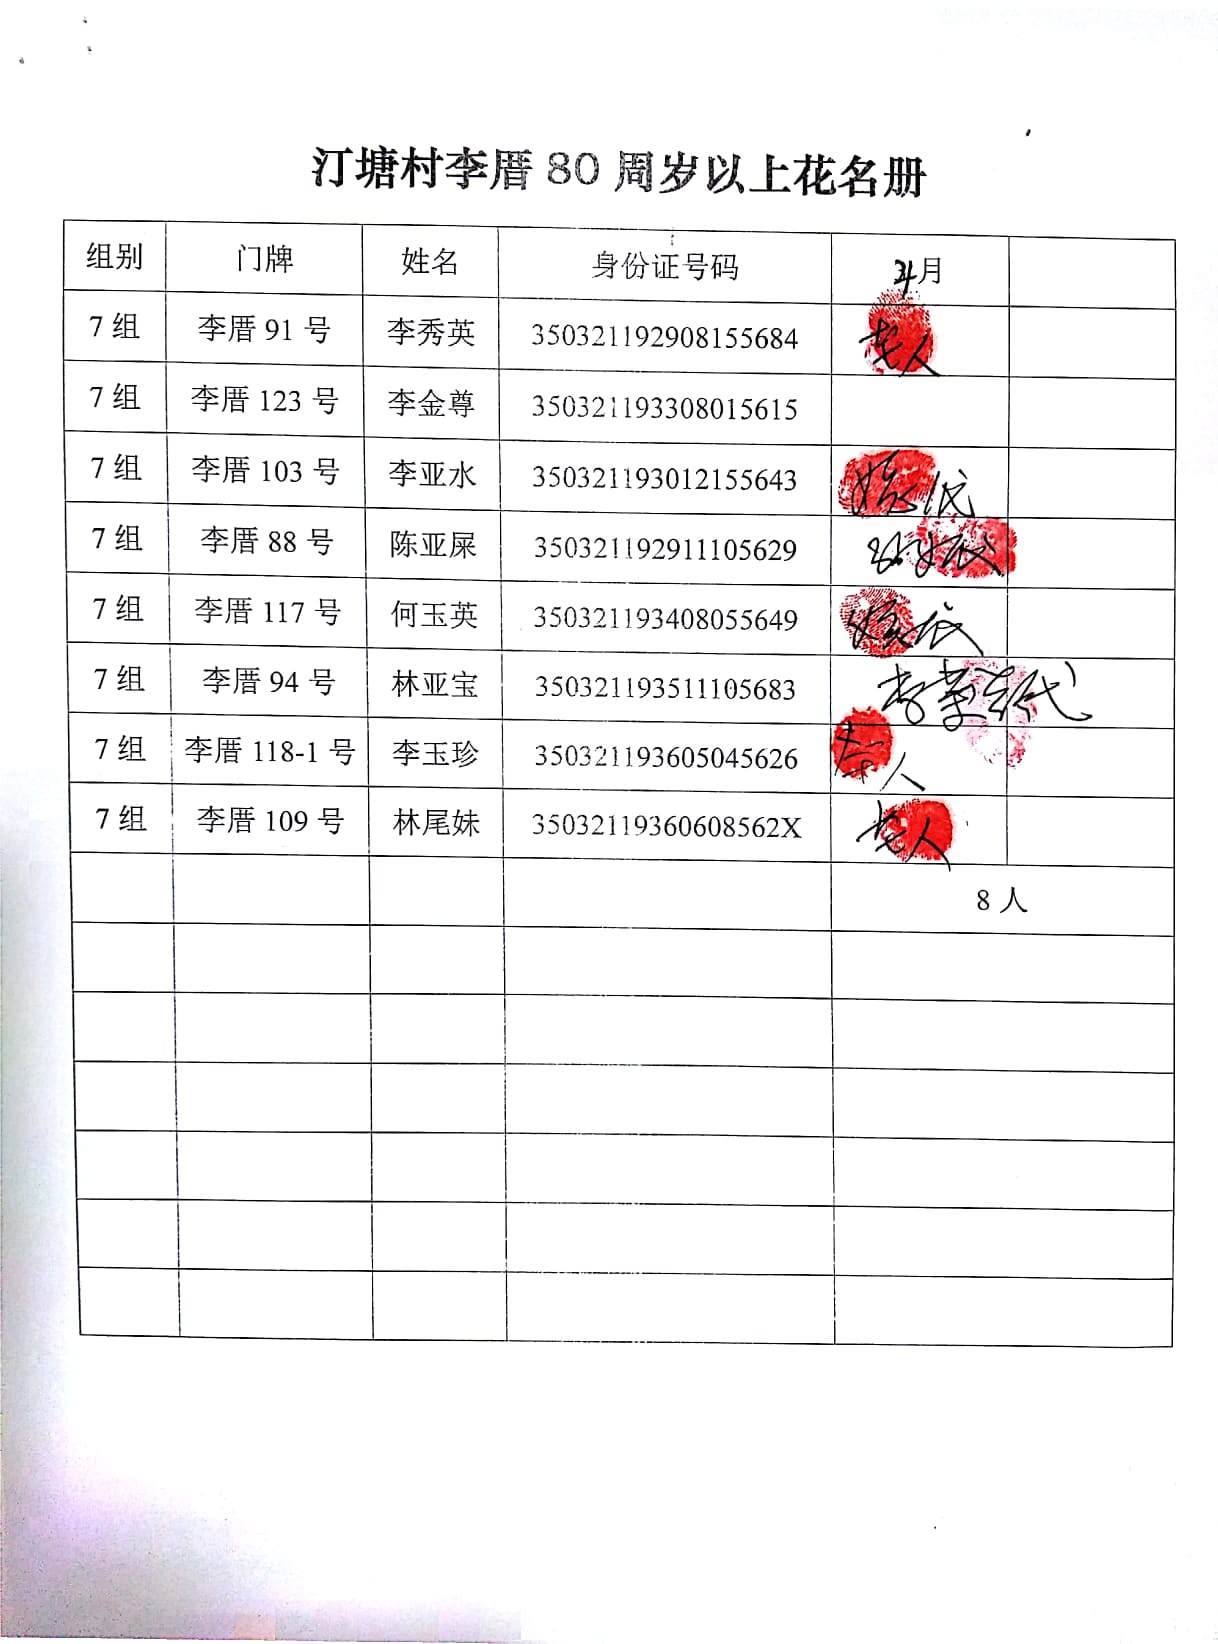 汀塘村李厝80周岁以上花名册
组别 门牌 姓名 身份证号码 月
7组 李厝91号 李秀英 350321192908155684 老人
7组 李厝123号 李金尊 350321193308015615
7组 李厝103号 李亚水 350321193012155643
7组 李厝88号 陈亚屎 350321192911105629
7组 李厝117号 何玉英 350321193408055649
7组 李厝94号 林亚宝 350321193511105683
7组 李厝118-1号 李玉珍 350321193605045626 人
7组 李厝109号 林尾妹 35032119360608562X 老人
8人